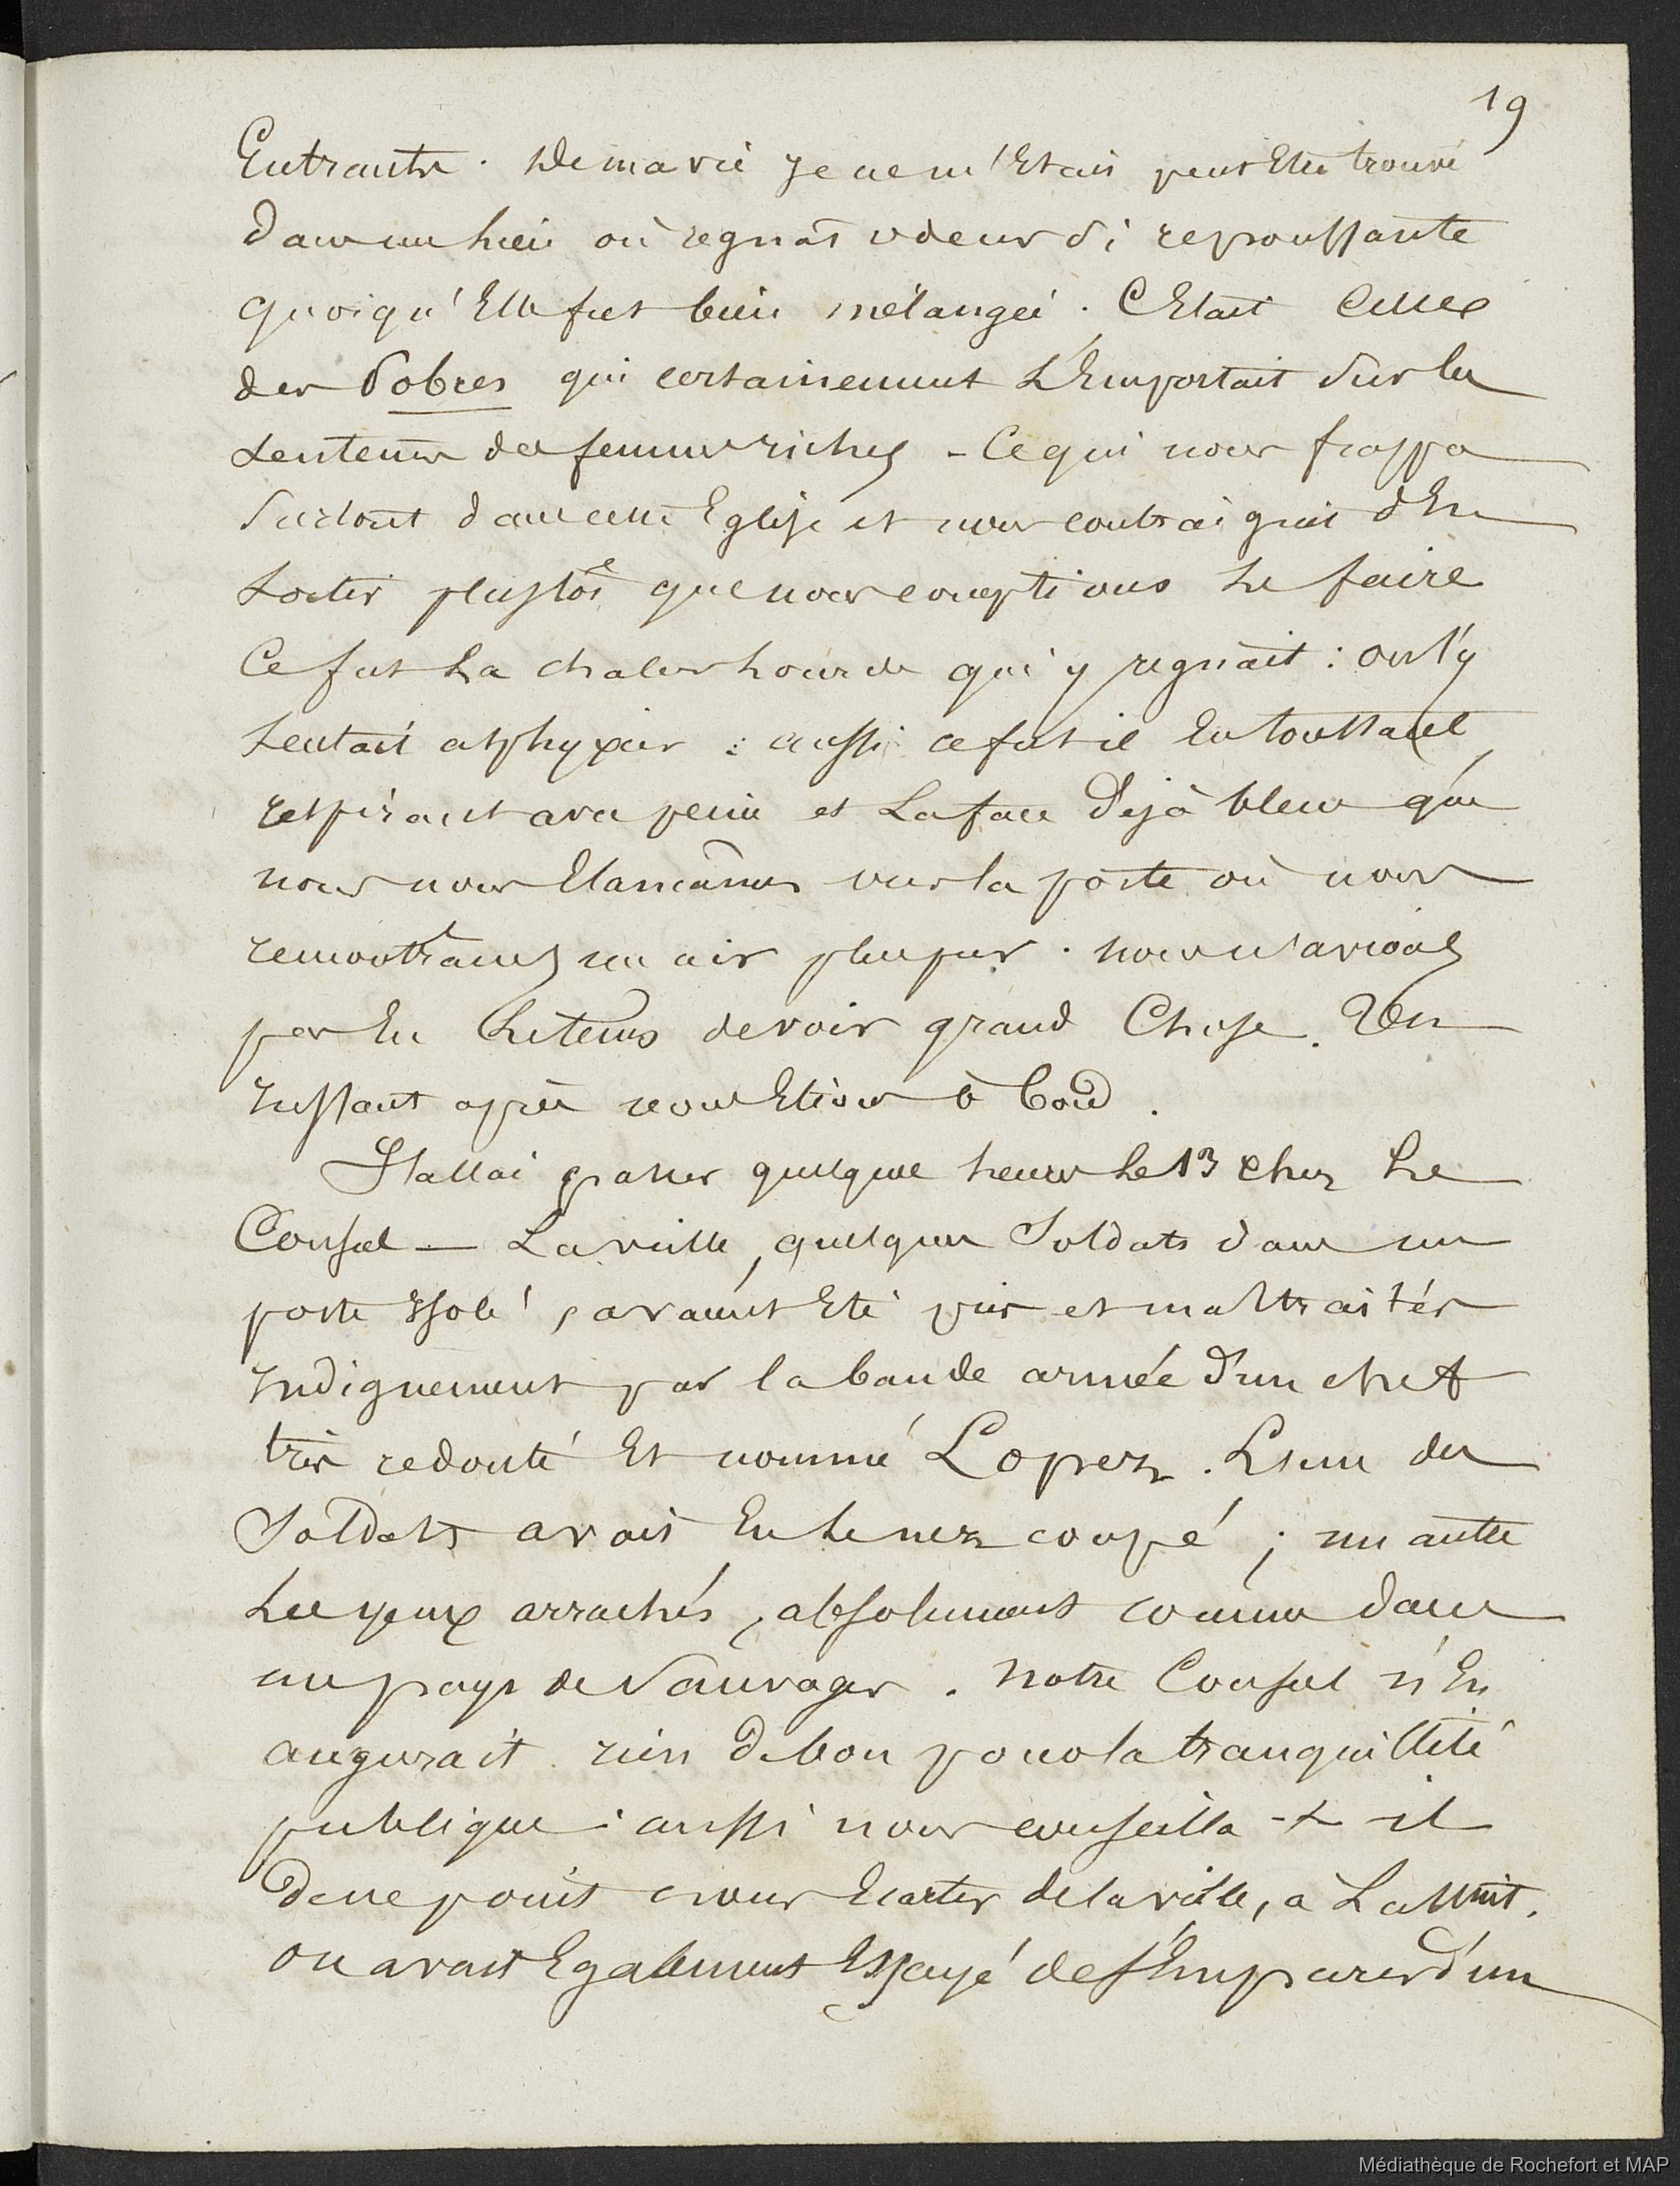 19
Entrante. De ma vie je ne m'Etais peut Etre trouvé
dans un lieu où regnat odeur si repoussante
quoiqu'Elle fut bien mélangée. C'Etait celle
des Pobres qui certainement L'Emportait sur la
senteur des femmes riches - Ce qui nous frappa
surtout dans cette Eglise et nous contraignit d'En
sortir plustôt que nous comptions le faire
Ce fut La chaleur lourde qui y regnait : on s'y
sentait asphyxier : aussi ce fut-il En toussant,
respirant avec peine et La face déjà bleue que
nous nous Elancâmes vers la porte où nous
rencontrâmes un air plus pur. nous n'avions
pas Eu Le tems de voir grand Chose. Un
Instant après nous Etions à bord.
J'allai passer quelque heures le 13 chez Le
Consul — La veille, quelques Soldats dans un
poste Isolé, avaient Eté pris et maltraités
Indignement par la bande armée d'un chef
très redouté Et nommé Lopez. L'un des
Soldats avait Eu le nez coupé ; un autre
Les yeux arrachés, absolument comme dans
un pays de Sauvages. Notre Consul n'En
augurait rien de bon pour la tranquillité
publique : aussi nous conseilla-t-il
de ne point nous Ecarter de la ville, a La Nuit.
On avait Egalement Essayé de s'Emparer d'un
Médiathèque de Rochefort et MAP